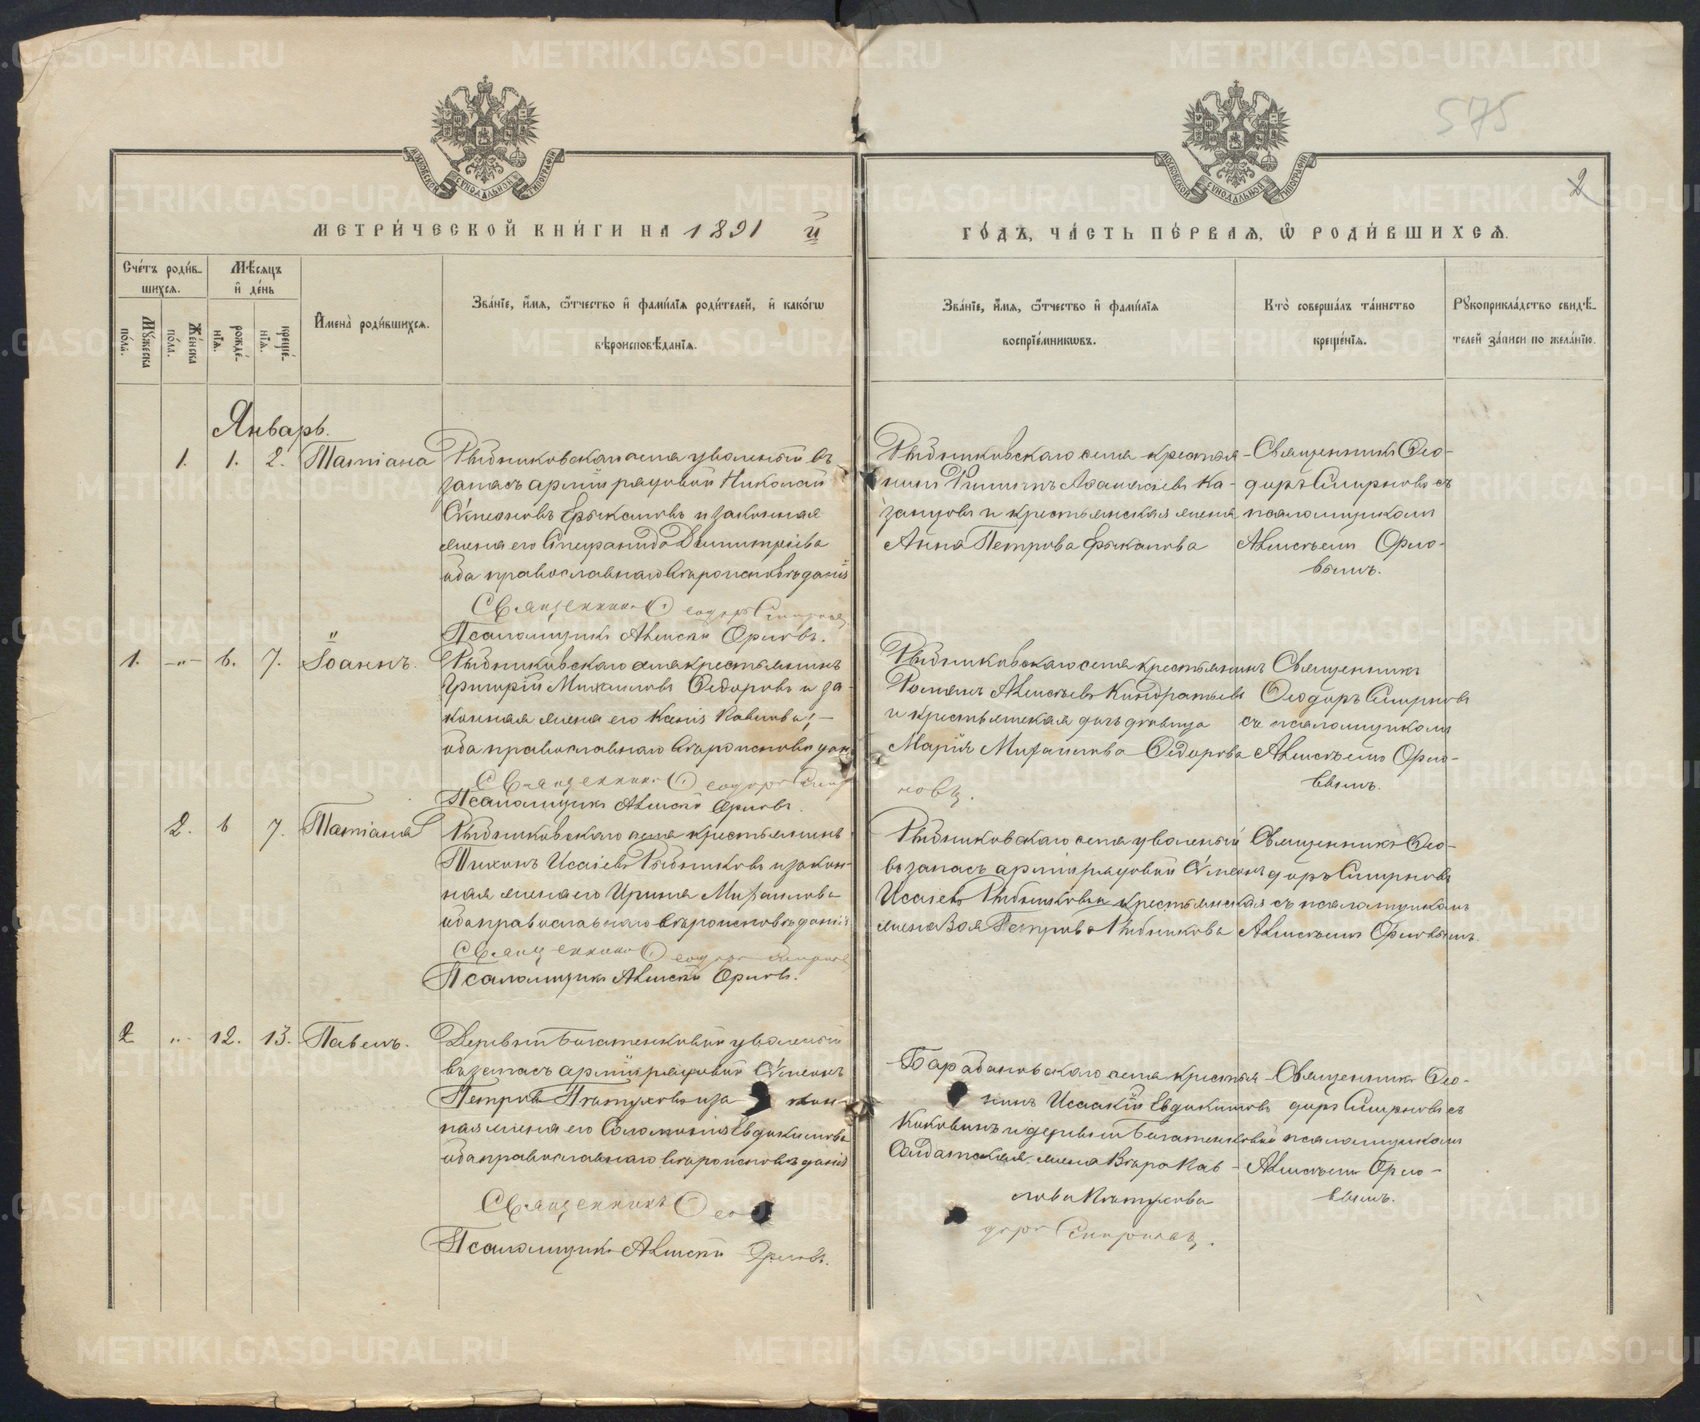 METRIKI.GASO-URAL.RU
575
2
МОСКОВСКОЙ СѴНОДАЛЬНОЙ ТИПОГРАФІИ
МОСКОВСКОЙ СѴНОДАЛЬНОЙ ТИПОГРАФІИ
МЕТРИ́ЧЕСКОЙ КНИ́ГИ НА 1891 й
ГО́ДЪ, ЧА́СТЬ ПЕ́РВАЯ, Ѡ РОДИ́ВШИХСЯ.
Сче́тъ роди́вшихся.
Мѣ́сяцъ и де́нь
Мꙋ́жеска по́лъ.
Же́нска по́лъ.
рожде́нїя.
креще́нїя.
И҆мена̀ роди́вшихся.
Зва́нїе, и҆́мя, ѻ҆́тчество и҆ фами́лїя роди́телей, и҆ како́гѡ
вѣроисповѣ́данїя.
Зва́нїе, и҆́мя, ѻ҆́тчество и҆ фами́лїя
воспрїе́мникѡвъ.
Кто̀ соверша́лъ та́инство
креще́нїя.
Рꙋкоприкла́дство свидѣ́-
телей за́писи по жела́нїю.
Январь.
1. 1. 2. Татіана
Рыбниковскаго села уволенный въ
запасъ арміи рядовой Николай
Сѵмеоновъ и законная
жена его Стефанида Димитріева
оба православнаго вѣроисповѣданія
Священникъ Ѳеодоръ Смирновъ
Псаломщикъ Алексѣй Орловъ.
Рыбниковскаго села крестья-
нинъ Филиппъ Аѳанасьевъ Ка-
занцовъ и крестьянская жена
Анна Петрова
Священникъ Ѳео-
доръ Смирновъ съ
псаломщикомъ
Алексѣемъ Орло-
вымъ.
1. -"- 6. 7. Іоаннъ.
Рыбниковскаго села крестьянинъ
Григорій Михаиловъ Ѳедоровъ и за-
конная жена его Павлова, —
оба православнаго вѣроисповѣдан.
Священникъ Ѳеодоръ
Псаломщикъ Алексѣй Орловъ.
Рыбниковскаго села крестьянинъ
Романъ Алексѣевъ Кондратьевъ
и крестьянская дочь дѣвица
Марія Михаилова Ѳедорова
новъ.
Священникъ
Ѳеодоръ Смирновъ
съ псаломщикомъ
Алексѣемъ Орло-
вымъ.
2. 6 7. Татіана
Рыбниковскаго села крестьянинъ
Тихонъ Исаіевъ Рыбниковъ и закон-
ная жена его Ирина Михаилова
оба православнаго вѣроисповѣданія
Священникъ Ѳеодоръ Смирновъ
Псаломщикъ Алексѣй Орловъ.
Рыбниковскаго села уволенный
въ запасъ арміи рядовой Сѵмеонъ
Исаіевъ Рыбниковъ и крестьянская
жена Зоя Петрова Рыбникова
Священникъ Ѳео-
доръ Смирновъ
съ псаломщикомъ
Алексѣемъ Орловымъ.
2 " 12. 13. Павелъ.
Деревни Богатенковой уволенный
въ запасъ арміи рядовой Сѵмеонъ
Петровъ и за кон-
ная жена его Соломонія Евдокимова
оба православнаго вѣроисповѣданія
Священникъ Ѳео
Псаломщикъ Алексѣй Орловъ.
Барабановскаго села крестья-
нинъ Исаакій Евдокимовъ
Коковинъ и деревни Богатенковой
Солдатская жена Вѣра Пав-
лова
доръ Смирновъ.
Священникъ Ѳео-
доръ Смирновъ съ
псаломщикомъ
Алексѣемъ Орло-
вымъ.